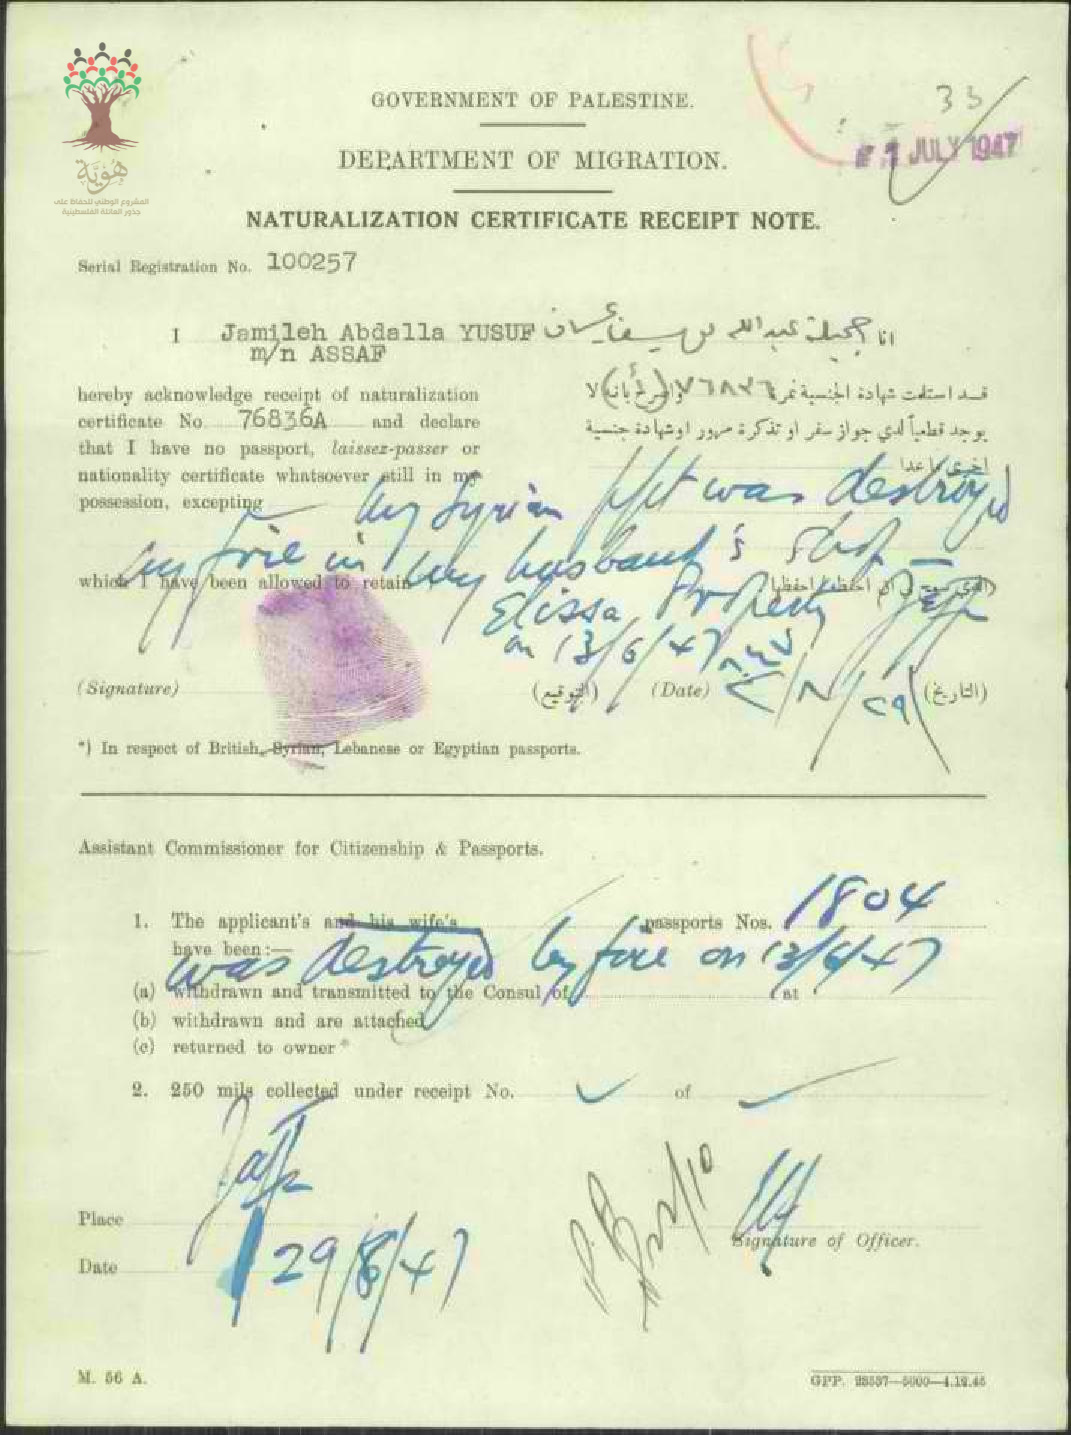 هُوِيَّة
المشروع الوطني للحفاظ على
جذور العائلة الفلسطينية
33
JULY 1947
GOVERNMENT OF PALESTINE.
DEPARTMENT OF MIGRATION.
NATURALIZATION CERTIFICATE RECEIPT NOTE.
Serial Registration No. 100257
I Jamileh Abdalla YUSUF
m/n ASSAF
انا جميلة عبدالله يوسف عساف
hereby acknowledge receipt of naturalization
certificate No. 76836A and declare
that I have no passport, laissez-passer or
nationality certificate whatsoever still in my
possession, excepting
قد استلمت شهادة الجنسية نمرة ٧٦٨٣٦ واصرح بأنه لا
يوجد قطعياً لدي جواز سفر او تذكرة مرور او شهادة جنسية
اخرى ما عدا
my Syrian ppt was destroyed
by fire in my husband's shop –
which I have been allowed to retain
Elissa Property Jaffa
on 13/6/47
(Signature) (التوقيع) (Date) ٢٩/ (التاريخ)
*) In respect of British, Syrian, Lebanese or Egyptian passports.
Assistant Commissioner for Citizenship & Passports.
1. The applicant's and his wife's passports Nos. 1804
have been:—
was destroyed by fire on 13/6/47
(a) withdrawn and transmitted to the Consul of at
(b) withdrawn and are attached
(c) returned to owner *
2. 250 mils collected under receipt No. of
Jaffa
Place
Signature of Officer.
Date 29/8/47
M. 56 A.
GPP. 23537—5000—4.12.45